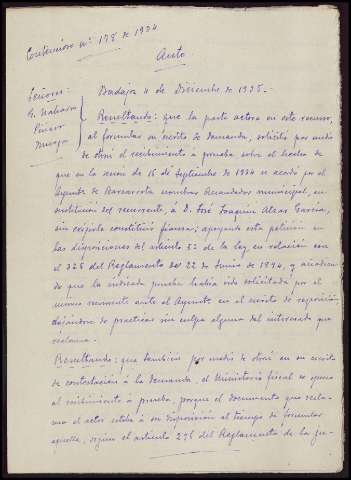 Contencioso nº 178 de 1934
Auto
Señores:
G. 
Badajoz 4 de Diciembre de 1935.
Resultando: que la parte actora en este recurso,
al formular su escrito de demanda, solicitó por medio
de otrosí el recibimiento á prueba sobre el hecho de
que en la sesión de 16 de Septiembre de 1934 se acordó por el
Ayunto de Barcarrota nombrar Recaudador municipal, en
sustitución del recurrente, á D. José Joaquín Alzas García,
sin exigirle constitución fianza; apoyando esta petición en
las disposiciones del artículo 52 de la ley en relación con
el 326 del Reglamento de 22 de Junio de 1894, y
de que la indicada prueba había sido solicitada por el
mismo recurrente ante el Ayunto en el escrito de reposición,
dejándose de practicar sin culpa alguna del interesado que
reclama.
Resultando: que también por medio de otrosí en su escrito
de contestación á la demanda, el Ministerio fiscal se opuso
al recibimiento á prueba, porque el documento que recla-
ma el actor estaba á su disposición al tiempo de formular
aquella, según el artículo 276 del Reglamento de la Ju-